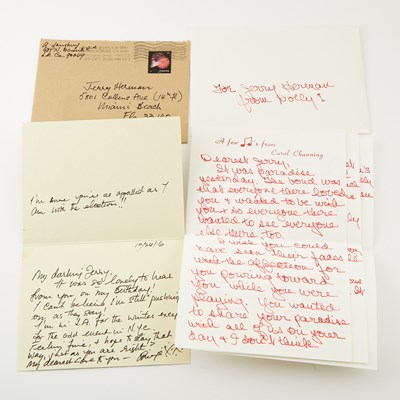 A Lansbury
L.A. Ca. 90049
Jerry Herman
5001 Collins Ave
Miami Beach
Fla
For Jerry Herman
from Dolly!
I'm sure you're as appalled as I
am with the election!!
My darling Jerry,
It was so lovely to hear
from you on my Birthday!
I can't believe I'm still pushing
on as they say!
I'm in L.A. for the winter except
for the odd event in N.Y.C.
Feeling fine, & hope to stay that
way, just as you are right?
My dearest love to you —
A few ♫'s from
Carol Channing
Dearest Jerry,
It was paradise
yesterday. The bond was
that everyone there loved
you & wanted to be with
you & so everyone there
wanted to see everyone
else there too.
I wish you could
have seen their faces
with the affection for
you pouring toward
you while you were
playing. You wanted
to share your paradise
with all of us on your
day & I don't think